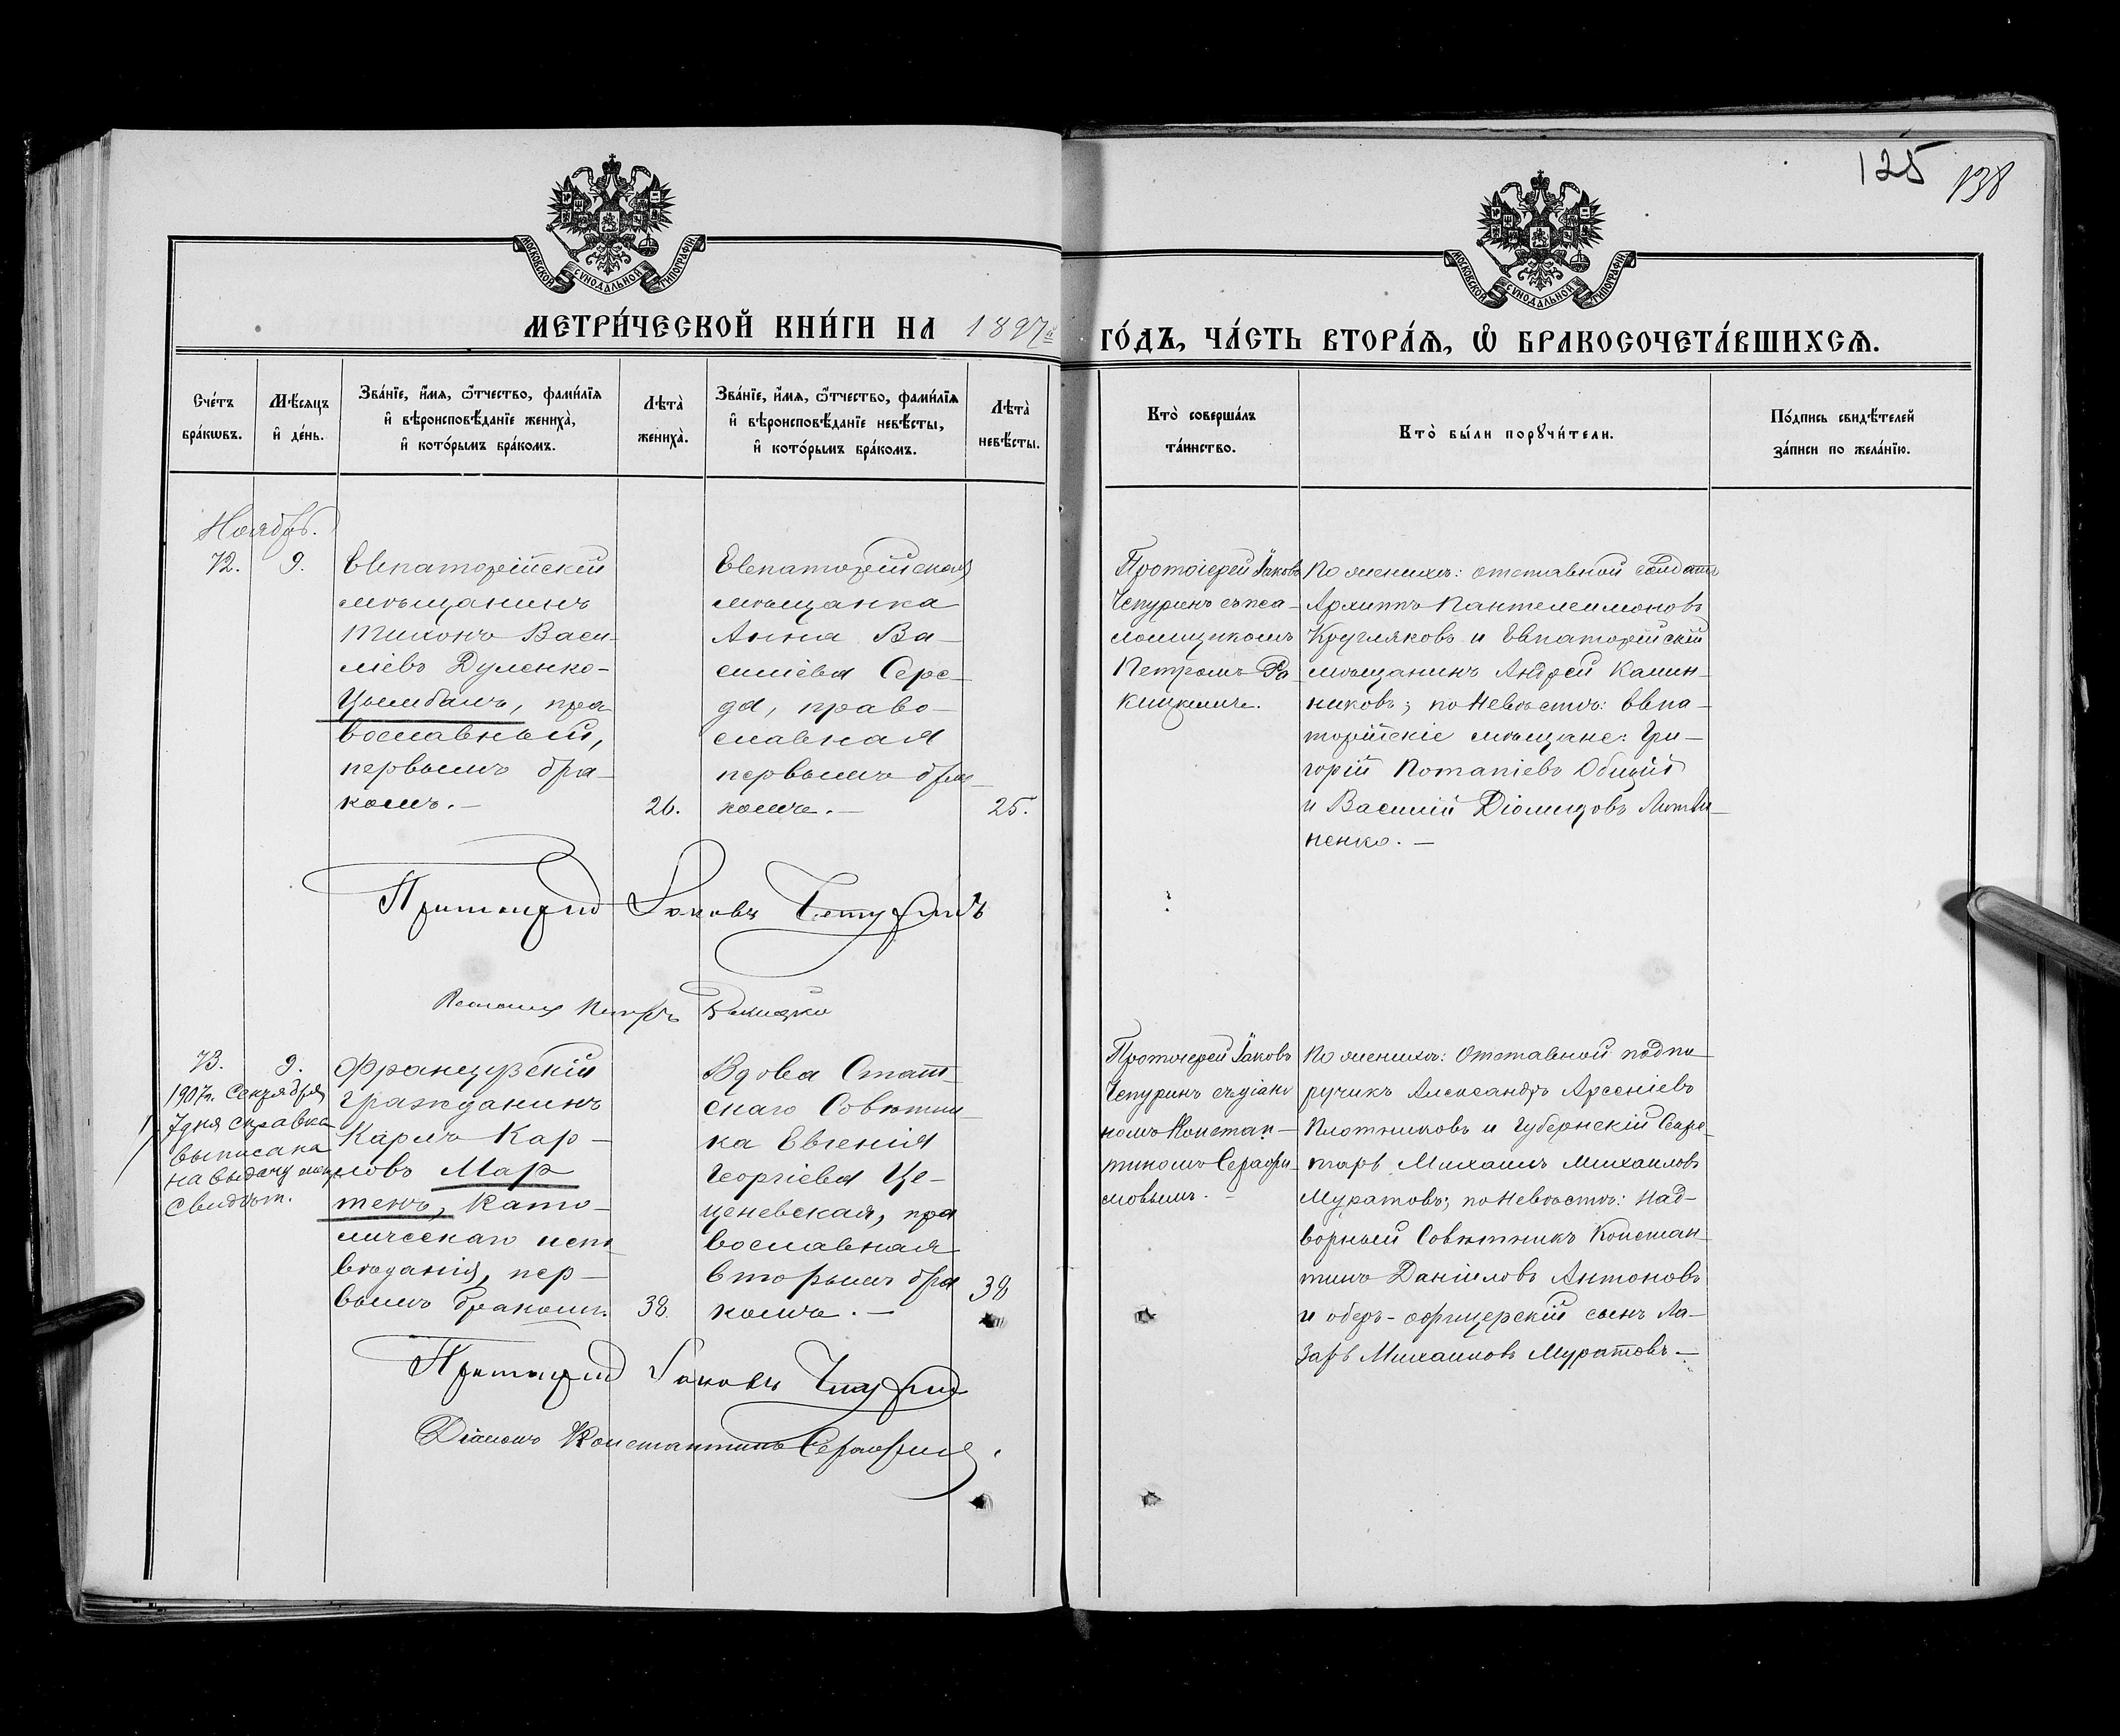 125 138
МОСКОВСКОЙ СѴНОДАЛЬНОЙ ТИПОГРАФІИ
МОСКОВСКОЙ СѴНОДАЛЬНОЙ ТИПОГРАФІИ
МЕТРИ́ЧЕСКОЙ КНИ́ГИ НА 1897й ГО́ДЪ, ЧА́СТЬ ВТОРА́Ѧ, Ѽ БРАКОСОЧЕТА́ВШИХСѦ.
Сче́тъ
бра́кѡвъ.
Мѣ́сяцъ
и҆ де́нь.
Зва́нїе, и҆́мѧ, ѻ҆́тчество, фами́лїѧ
и҆ вѣроисповѣ́данїе жениха̀,
и҆ кото́рымъ бра́комъ.
Лѣта̀
жениха̀.
Зва́нїе, и҆́мѧ, ѻ҆́тчество, фами́лїѧ
и҆ вѣроисповѣ́данїе невѣ́сты,
и҆ кото́рымъ бра́комъ.
Лѣта̀
невѣ́сты.
Кто̀ соверша́лъ
та́инство.
Кто̀ бы́ли порꙋчи́тели.
По́дпись свидѣ́телей
за́писи по жела́нїю.
Ноябрь.
72.
9.
Евпаторійскій
мѣщанинъ
Тихонъ Васи-
ліевъ Дуленко-
Цымбалъ, пра-
вославный,
первымъ бра-
комъ. —
26.
Евпаторійская
мѣщанка
Анна Ва-
силіева Сере-
да, право-
славная
первымъ бра-
комъ. —
25.
Протоіерей Іаковъ
Чепуринъ съ пса-
ломщикомъ
Петромъ Ра-
кицкимъ.
По женихѣ: отставной солдатъ
Архиппъ Пантелеимоновъ
Кругляковъ и Евпаторійскій
мѣщанинъ Андрей Калин-
никовъ; по невѣстѣ: Евпа-
торійскіе мѣщане: Гри-
горій Потапіевъ Общій
и Василій Діомидовъ Литви-
ненко. —
Протоіерей Іаковъ Чепуринъ
Псаломщ Петръ Ракицкій
73.
9.
1907г. Сентября
7 дня справка
выписана
на выдачу
свидѣт.
Французскій
гражданинъ
Карлъ Кар-
ловъ Мар
тенъ, като-
лическаго испо
вѣданія, пер-
вымъ бракомъ.
38.
Вдова Статт-
скаго Совѣтни-
ка Евгенія
Георгіева Це-
ценевская, пра
вославная
вторымъ бра
комъ. —
38
Протоіерей Іаковъ
Чепуринъ съ діако
номъ Констан-
тиномъ Серафи-
мовымъ. —
По женихѣ: Отставной подпо-
ручикъ Александръ Арсеніевъ
Плотниковъ и Губернскій Секре-
тарь Михаилъ Михаиловъ
Муратовъ; по невѣстѣ: Над-
ворный Совѣтникъ Констан-
тинъ Даніиловъ Антоновъ
и оберъ-офицерскій сынъ Ла-
зарь Михаиловъ Муратовъ. —
Протоіерей Іаковъ Чепуринъ
Діаконъ Константинъ Серафимовъ